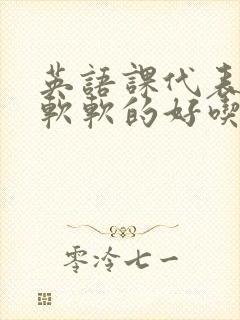 英語課代表
軟軟的好喫
零冷七一